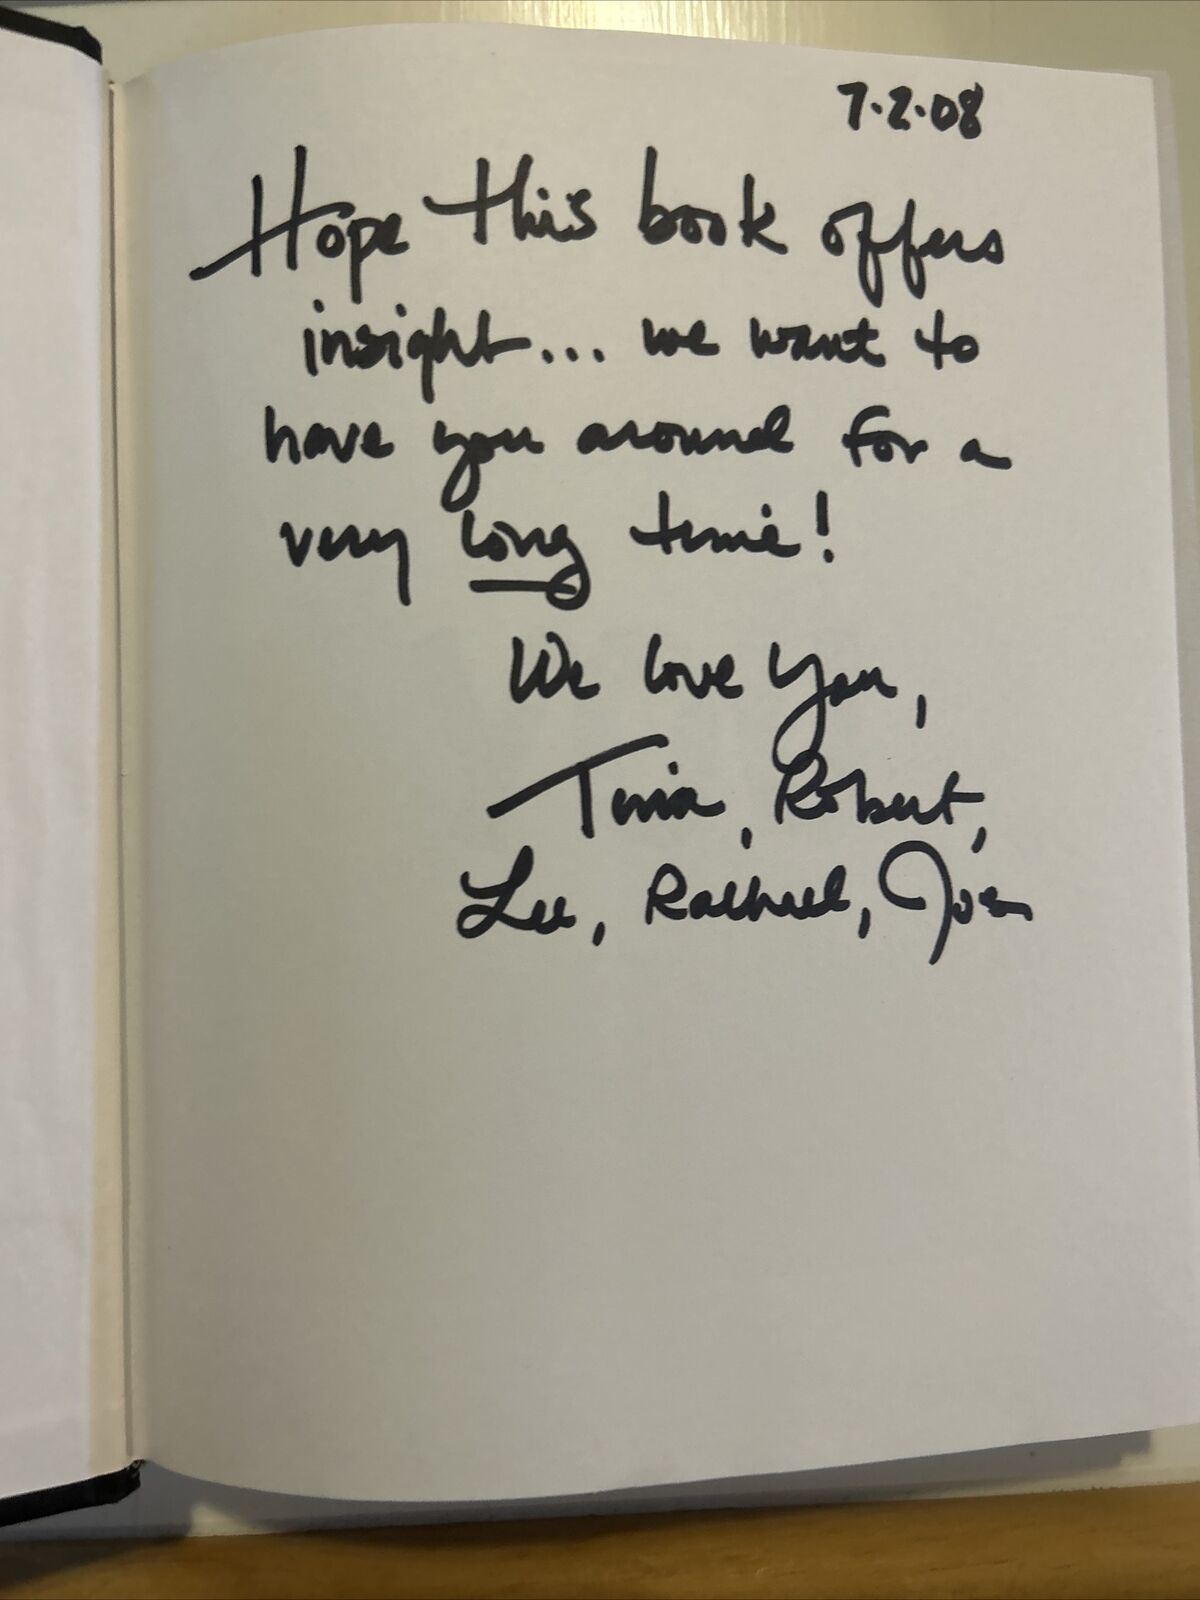 7.2.08
Hope this book offers
insight... we want to
have you around for a
very long time!
We love you,
Tina, Robert,
Lee, Rachael,